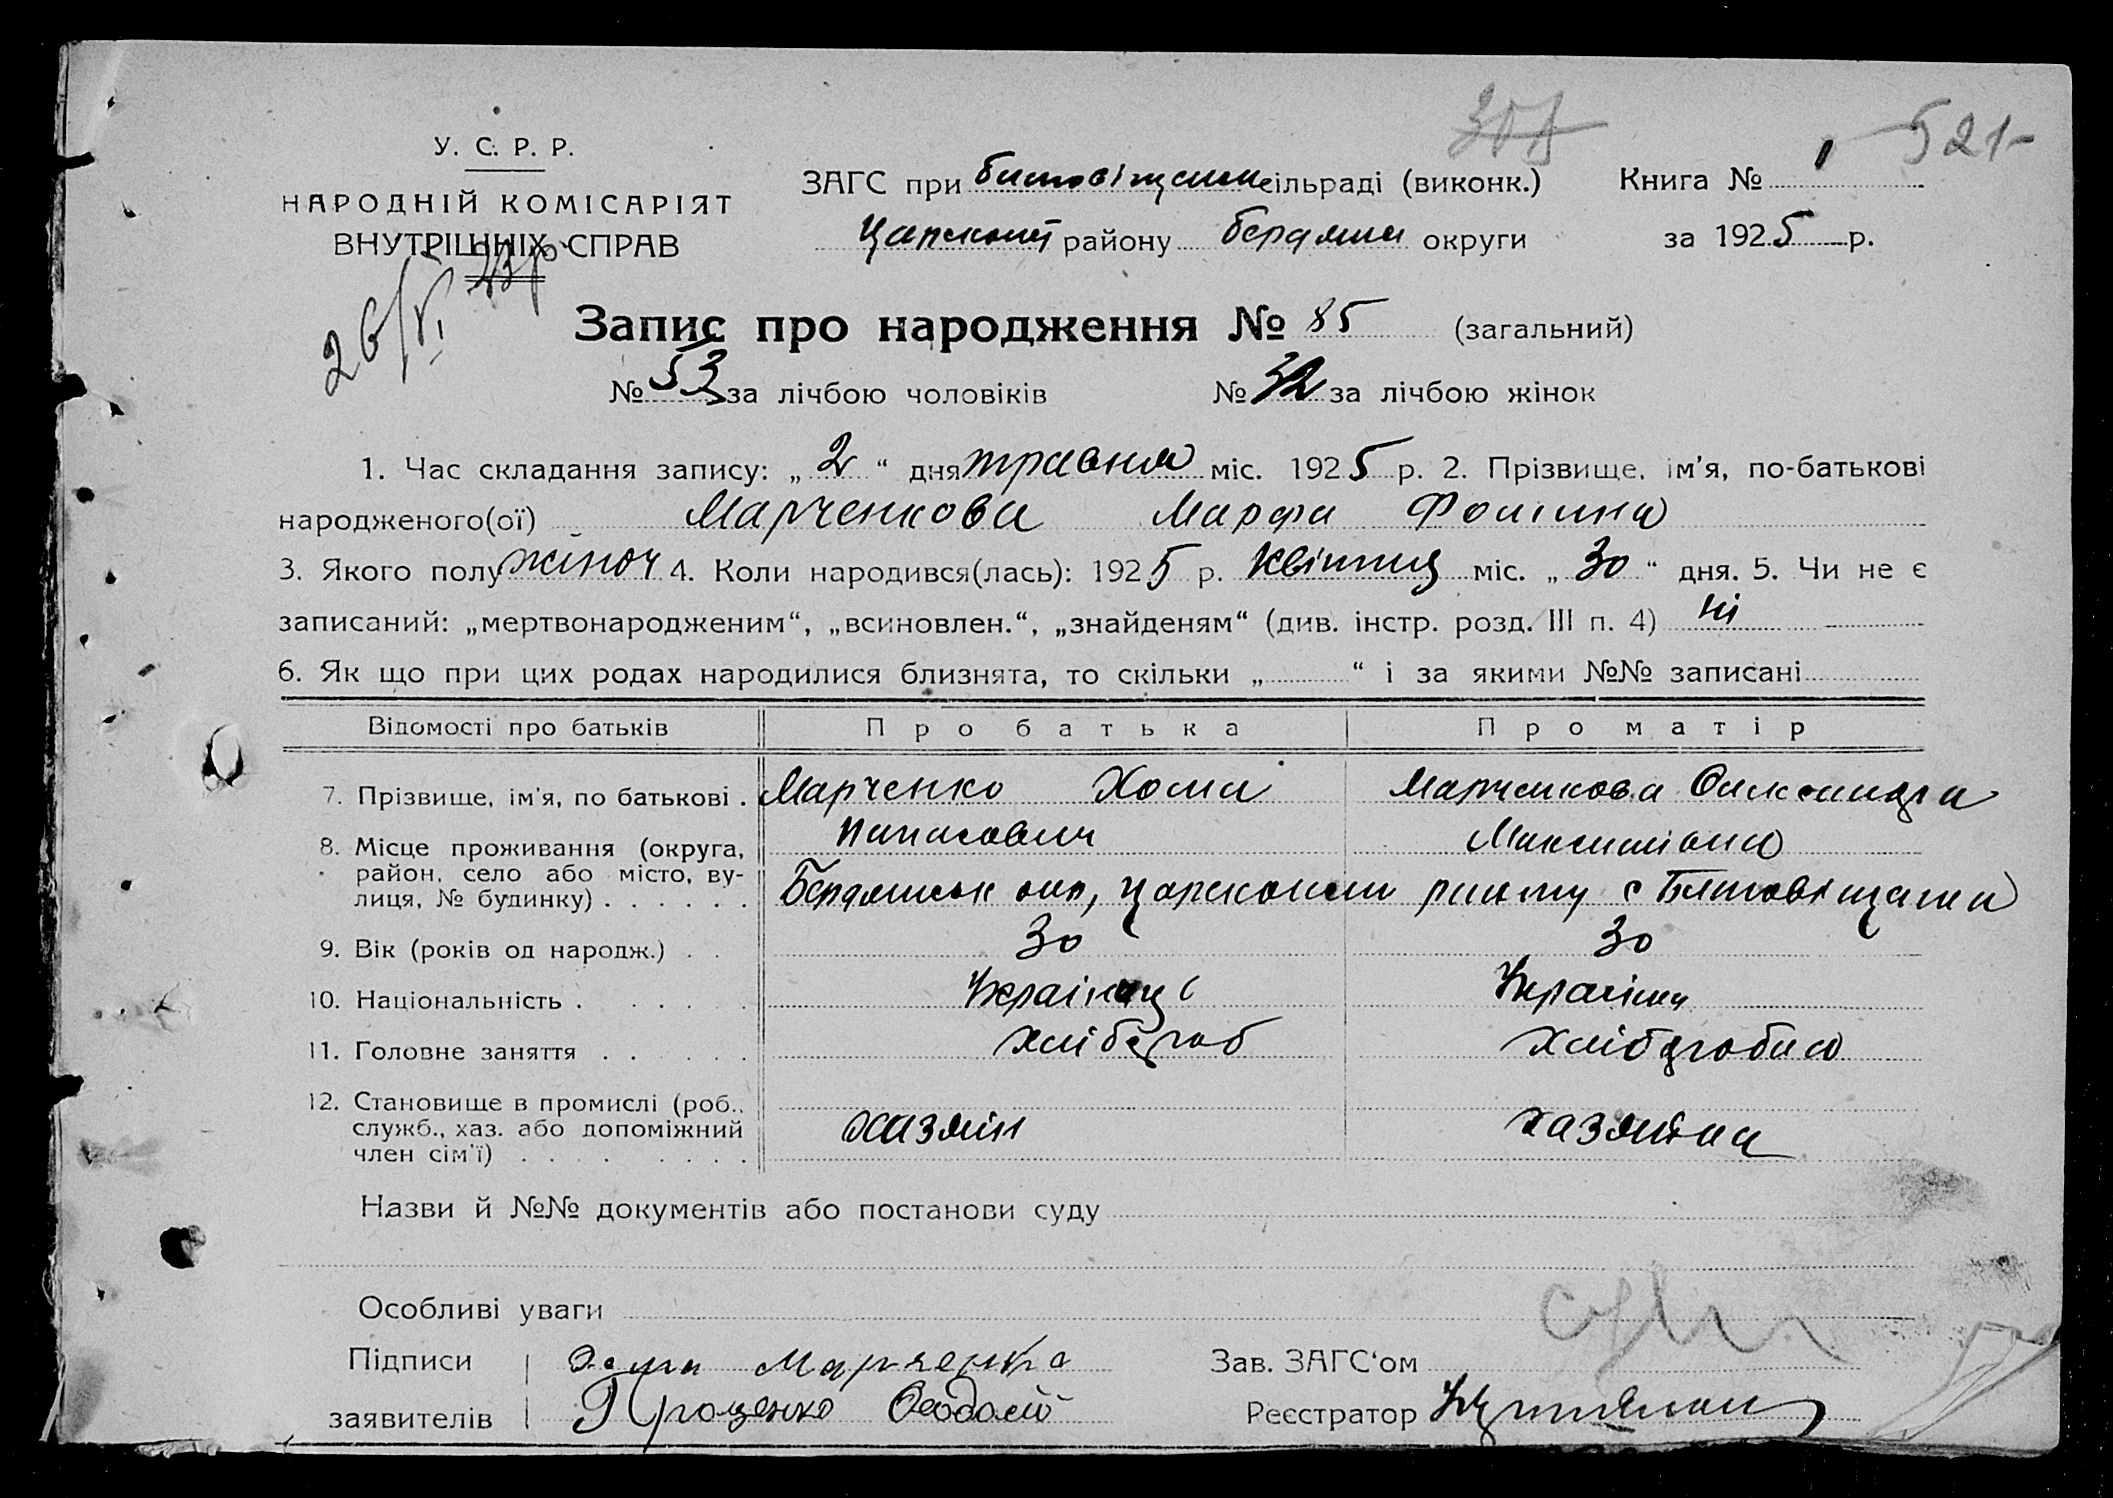 521-
У. С. Р. Р.
НАРОДНІЙ КОМІСАРІЯТ
ВНУТРІШНІХ СПРАВ
ЗАГС при сільраді (виконк.) Книга № 1
району Бердянск округи за 1925 р.
26/VI
Запис про народження № 85 (загальний)
№ 53 за лічбою чоловіків № 32 за лічбою жінок
1. Час складання запису: „ 2 “ дня травня міс. 1925 р. 2. Прізвище, ім'я, по-батькові
народженого(ої) Марченкова Марфа Фомина
3. Якого полу жіноч 4. Коли народився(лась): 1925 р. квітня міс. „ 30 “ дня. 5. Чи не є
записаний: „мертвонародженим“, „всиновлен.“, „знайденям“ (див. інстр. розд. III п. 4) ні
6. Як що при цих родах народилися близнята, то скільки „ “ і за якими №№ записані
Відомості про батьків Про батька Про матір
7. Прізвище, ім'я, по батькові . Марченко Хома Марченкова Олександра
Панасович Максимівна
8. Місце проживання (округа,
район, село або місто, ву-
лиця, № будинку) . . . . . . Бердянськ окр, царсконст району с
9. Вік (років од народж.) . . 30 30
10. Національність . . . . . Українець Українка
11. Головне заняття . . . . . хлібороб хлібороба
12. Становище в промислі (роб.,
служб., хаз. або допоміжний
член сім'ї) . . . . . . . . хазяїн хазяйка
Назви й №№ документів або постанови суду
Особливі уваги
Підписи Хома Марченко Зав. ЗАГС'ом
заявителів Проценко Феодосій Реєстратор